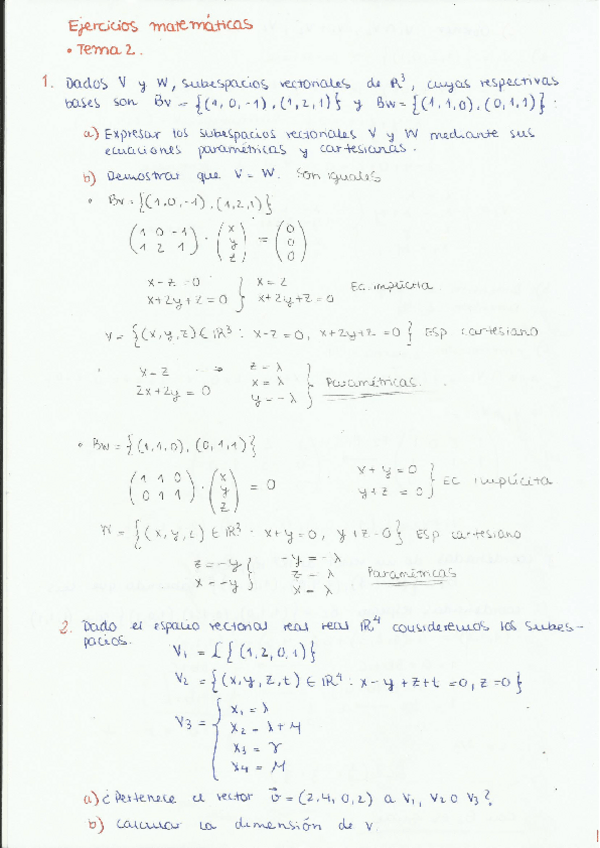 Ejercicios matemáticas
• Tema 2.
1. Dados V y W, subespacios vectoriales de R³, cuyas respectivas
bases son Bv = {(1, 0, -1), (1, 2, 1)} y Bw = {(1, 1, 0), (0, 1, 1)}:
a) Expresar los subespacios vectoriales V y W mediante sus
ecuaciones paramétricas y cartesianas.
b) Demostrar que V = W. Son iguales
• Bv = {(1, 0, -1), (1, 2, 1)}
(1 0 -1) (x) (0)
(1 2 1) · (y) = (0)
(z) (0)
x - z = 0 } x = z
x + 2y + z = 0 } x + 2y + z = 0 Ec. implícita
V = {(x, y, z) ∈ IR³ : x - z = 0, x + 2y + z = 0} Esp cartesiano
x - z → z = λ
2x + 2y = 0 x = λ } Paramétricas.
y = -λ
• Bw = {(1, 1, 0), (0, 1, 1)}
(1 1 0) (x)
(0 1 1) · (y) = 0
(z)
x + y = 0
y + z = 0 } Ec implícita
W = {(x, y, z) ∈ IR³ · x + y = 0, y + z = 0} Esp cartesiano
z = -y } -y = -λ
x = -y } z = λ } Paramétricas
x = λ
2. Dado el espacio vectorial real real IR⁴ consideremos los subes-
pacios.
V₁ = L{(1, 2, 0, 1)}
V₂ = {(x, y, z, t) ∈ IR⁴ : x - y + z + t = 0, z = 0}
V₃ = { x₁ = λ
x₂ = λ + μ
x₃ = γ
x₄ = μ
a) ¿Pertenece el vector v = (2, 4, 0, 2) a V₁, V₂ o V₃?
b) Calcular la dimensión de V.